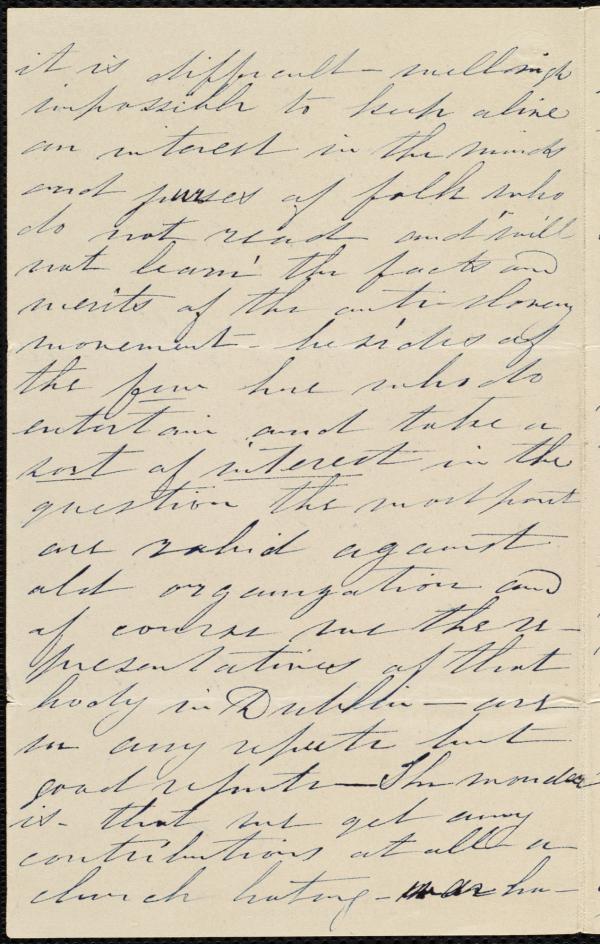 it is difficult - well nigh
impossible to keep alive
an interest in the minds
and purses of folk who
do not read and "will
not learn" the facts and
merits of the anti slavery
movement - besides of
the few here who do
entertain and take a
sort of interest in the
question the most part
are rabid against
old organization and
of course we the re-
presentatives of that
body in Dublin - are
in any repute but
good repute - The wonder
is - that we get any
contributions at all - a
church hating - war ha-